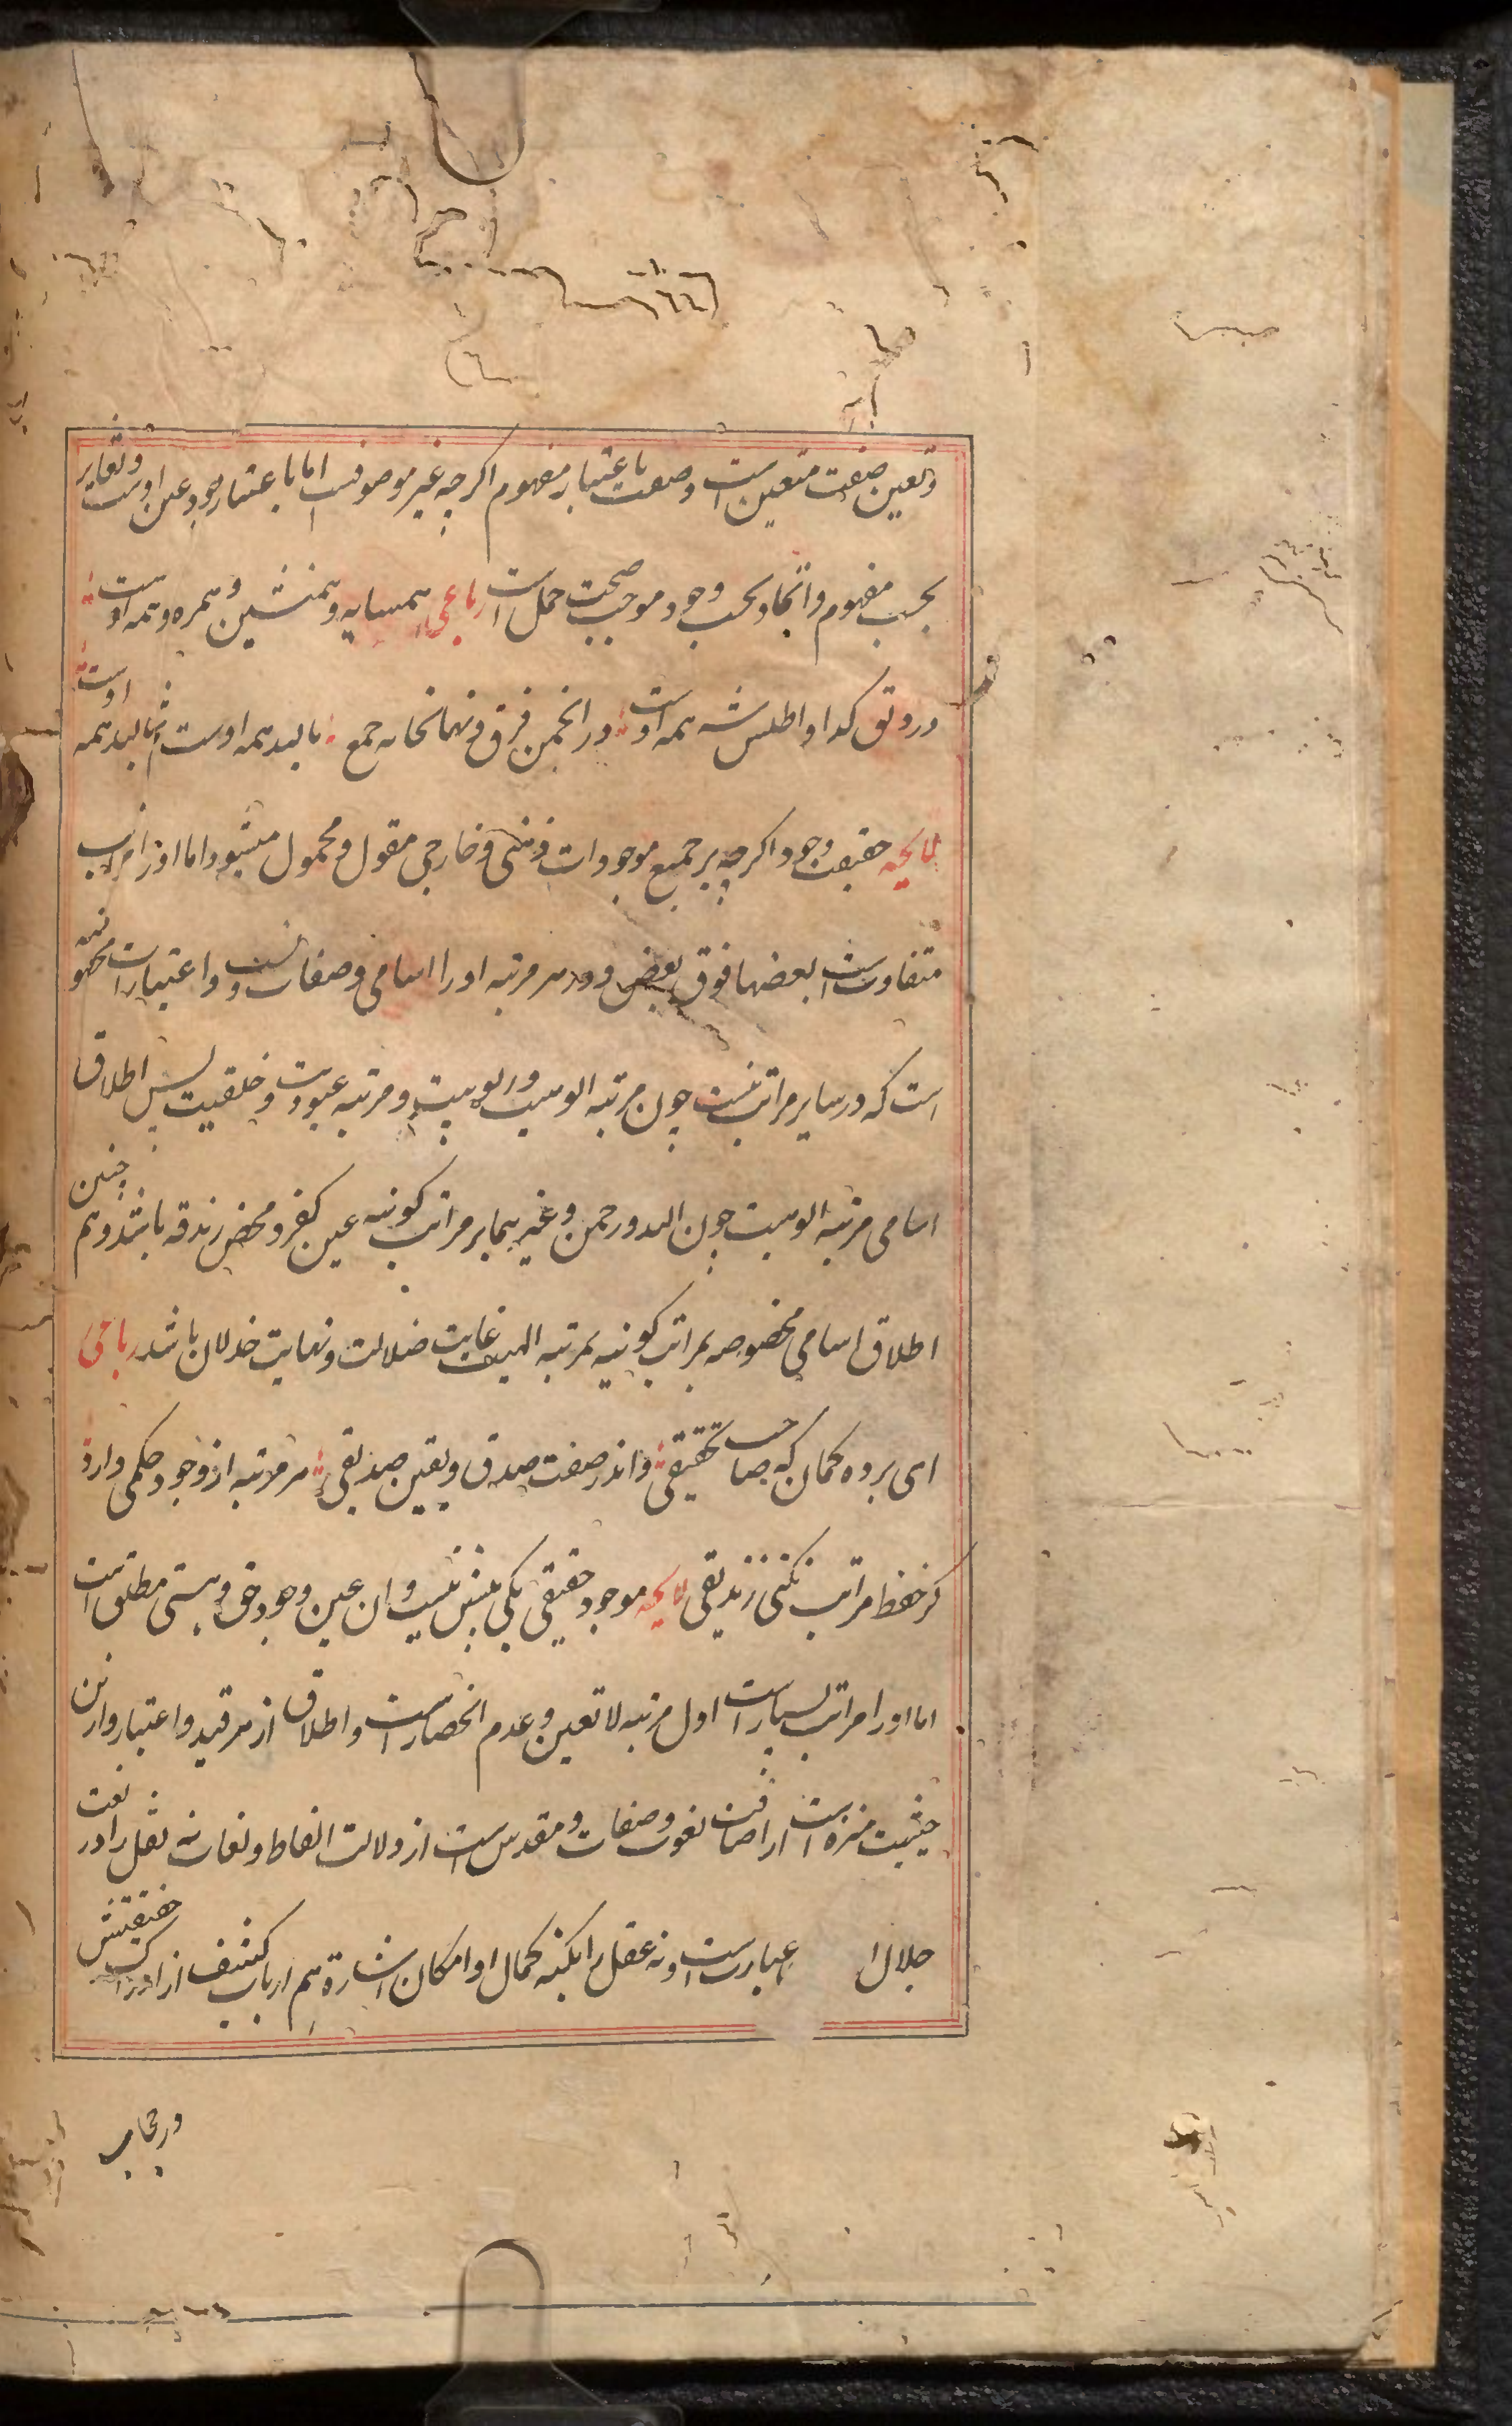 و تعین صفت متعین است و صفت باعتبار مفهوم اکرچه غیر موصوفست اما باعتبار وجود عین اوست و تغایر
بحسب مفهوم و اتحاد بحسب وجود موجب صحت حمل است رباعی همسایه و همنشین و همره همه اوست
در دلق کدا و اطلس شه همه اوست در انجمن فرق و نهانخانه جمع بالله همه اوست ثم بالله همه اوست
لایحه حقیقت وجود اکرچه بر جمیع موجودات ذهنی و خارجی مقول و محمول میشود اما او را مراتب
متفاوتست بعضها فوق بعض و در هر مرتبه او را اسامی و صفات و نسب و اعتبارات مخصوصه
است که در سایر مراتب نیست چون مرتبه الوهیت و ربوبیت و مرتبه عبودیت و خلقیت پس اطلاق
اسامی مرتبه الوهیت چون الله و رحمن و غیرهما بر مراتب کونیه عین کفر و محض زندقه باشد و هم چنین
اطلاق اسامی مخصوصه بمراتب کونیه بمرتبه الهیت غایت ضلالت و نهایت خذلان باشد رباعی
ای برده کمان که صاحب تحقیقی و اندر صفت صدق و یقین صدیقی هر مرتبه از وجود حکمی دارد
کر حفظ مراتب نکنی زندیقی لایحه موجود حقیقی یکی بیش نیست و ان عین وجود حق و هستی مطلق است
اما او را مراتب بسیار است اول مرتبه لا تعین و عدم انحصار است و اطلاق از هر قید و اعتبار و از این
حیثیت منزه است از اضافت نعوت و صفات و مقدس است از دلالت الفاظ و لغات نه نقل را در نعت
جلال ا عبارتست و نه عقل را بکنه کمال او امکان اشارة هم ارباب کشف از ادراک حقیقتش
در حجاب